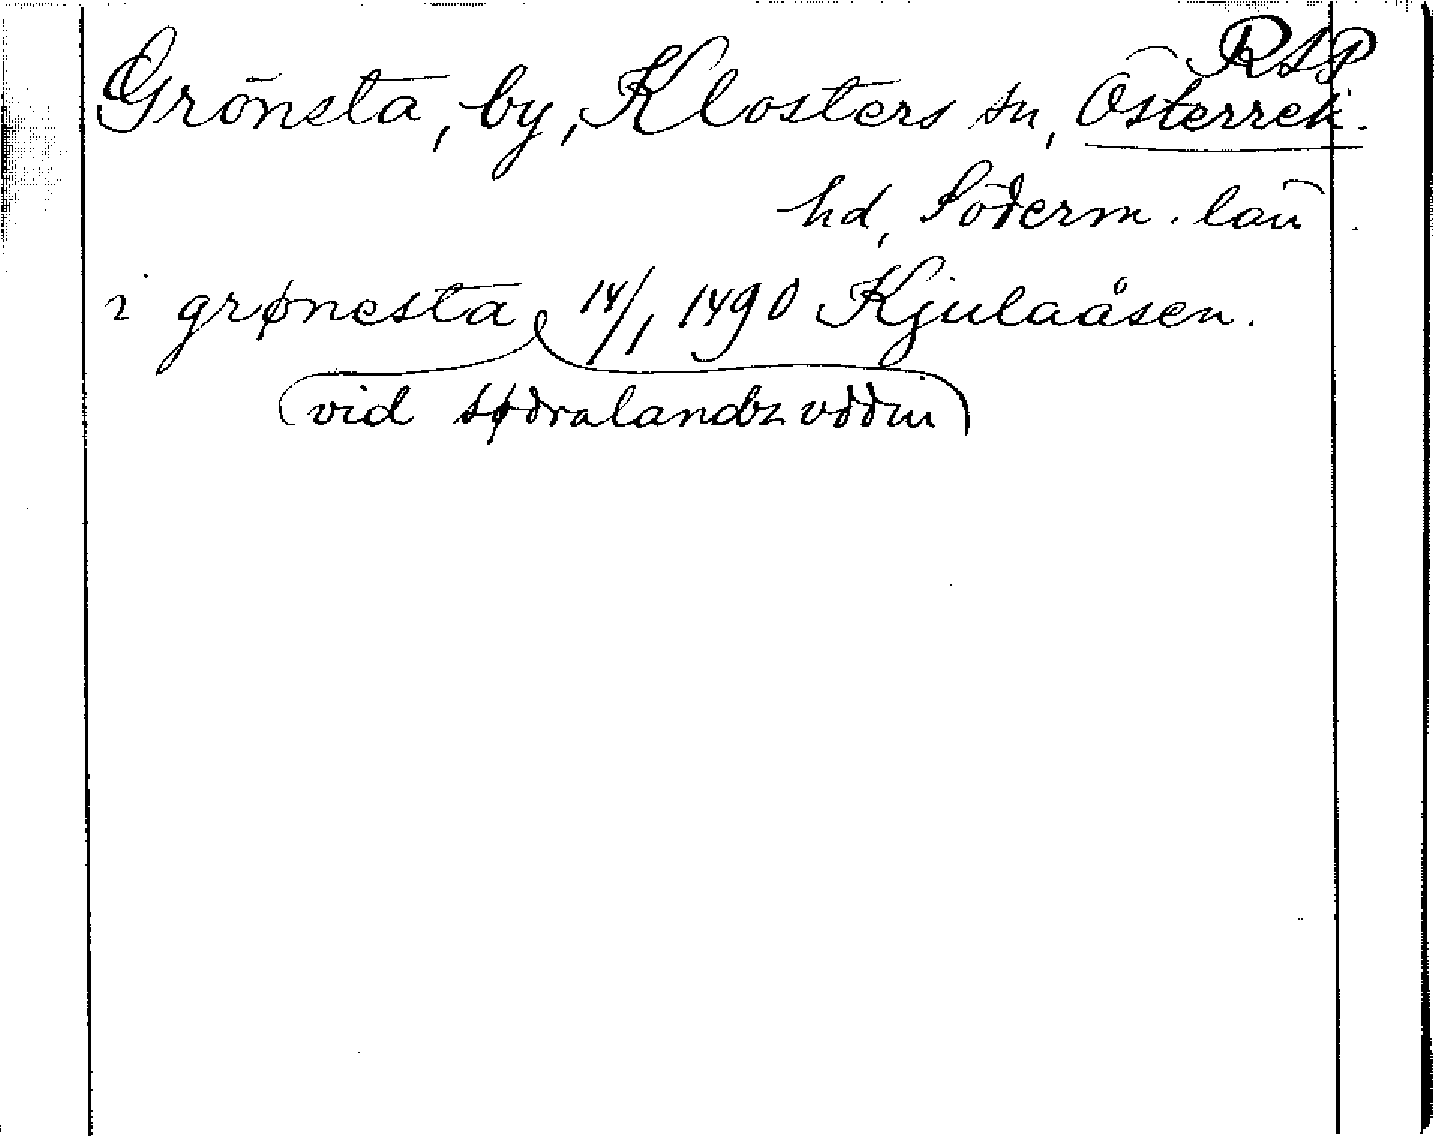 RAP
Grönsta, by, Klosters sn, Österrek.
hd, Söderm. län.
i grønesta 14/1 1490 Kjulaåsen.
(vid sødralandz vddin)